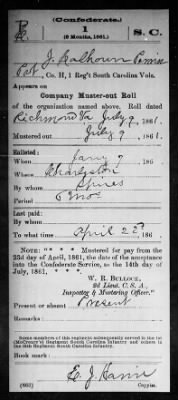 (Confederate.)
1
S. C.
(6 Months, 1861.)
J. Calhoun
Co. H, 1 Reg't South Carolina Vols.
Appears on
Company Muster-out Roll
of the organization named above. Roll dated
Richmond Va July 9, 1861.
Mustered out July 9, 1861.
Enlisted:
When Jany 7, 186
Where Charleston
By whom
Period 6 mos.
Last paid:
By whom
To what time April 22d, 186
NOTE: * * * Mustered for pay from the
23d of April, 1861, the date of the acceptance
into the Confederate Service, as the 14th day of
July, 1861. * * * *
W. R. BULLOCK,
2d Lieut. C. S. A.,
Inspecting & Mustering Officer."
Present or absent Present
Remarks:
Some members of this regiment subsequently served in the 1st
(McCreary's) Regiment South Carolina Infantry and others in
the South Carolina Infantry.
Book mark:
E. J.
Copyist.